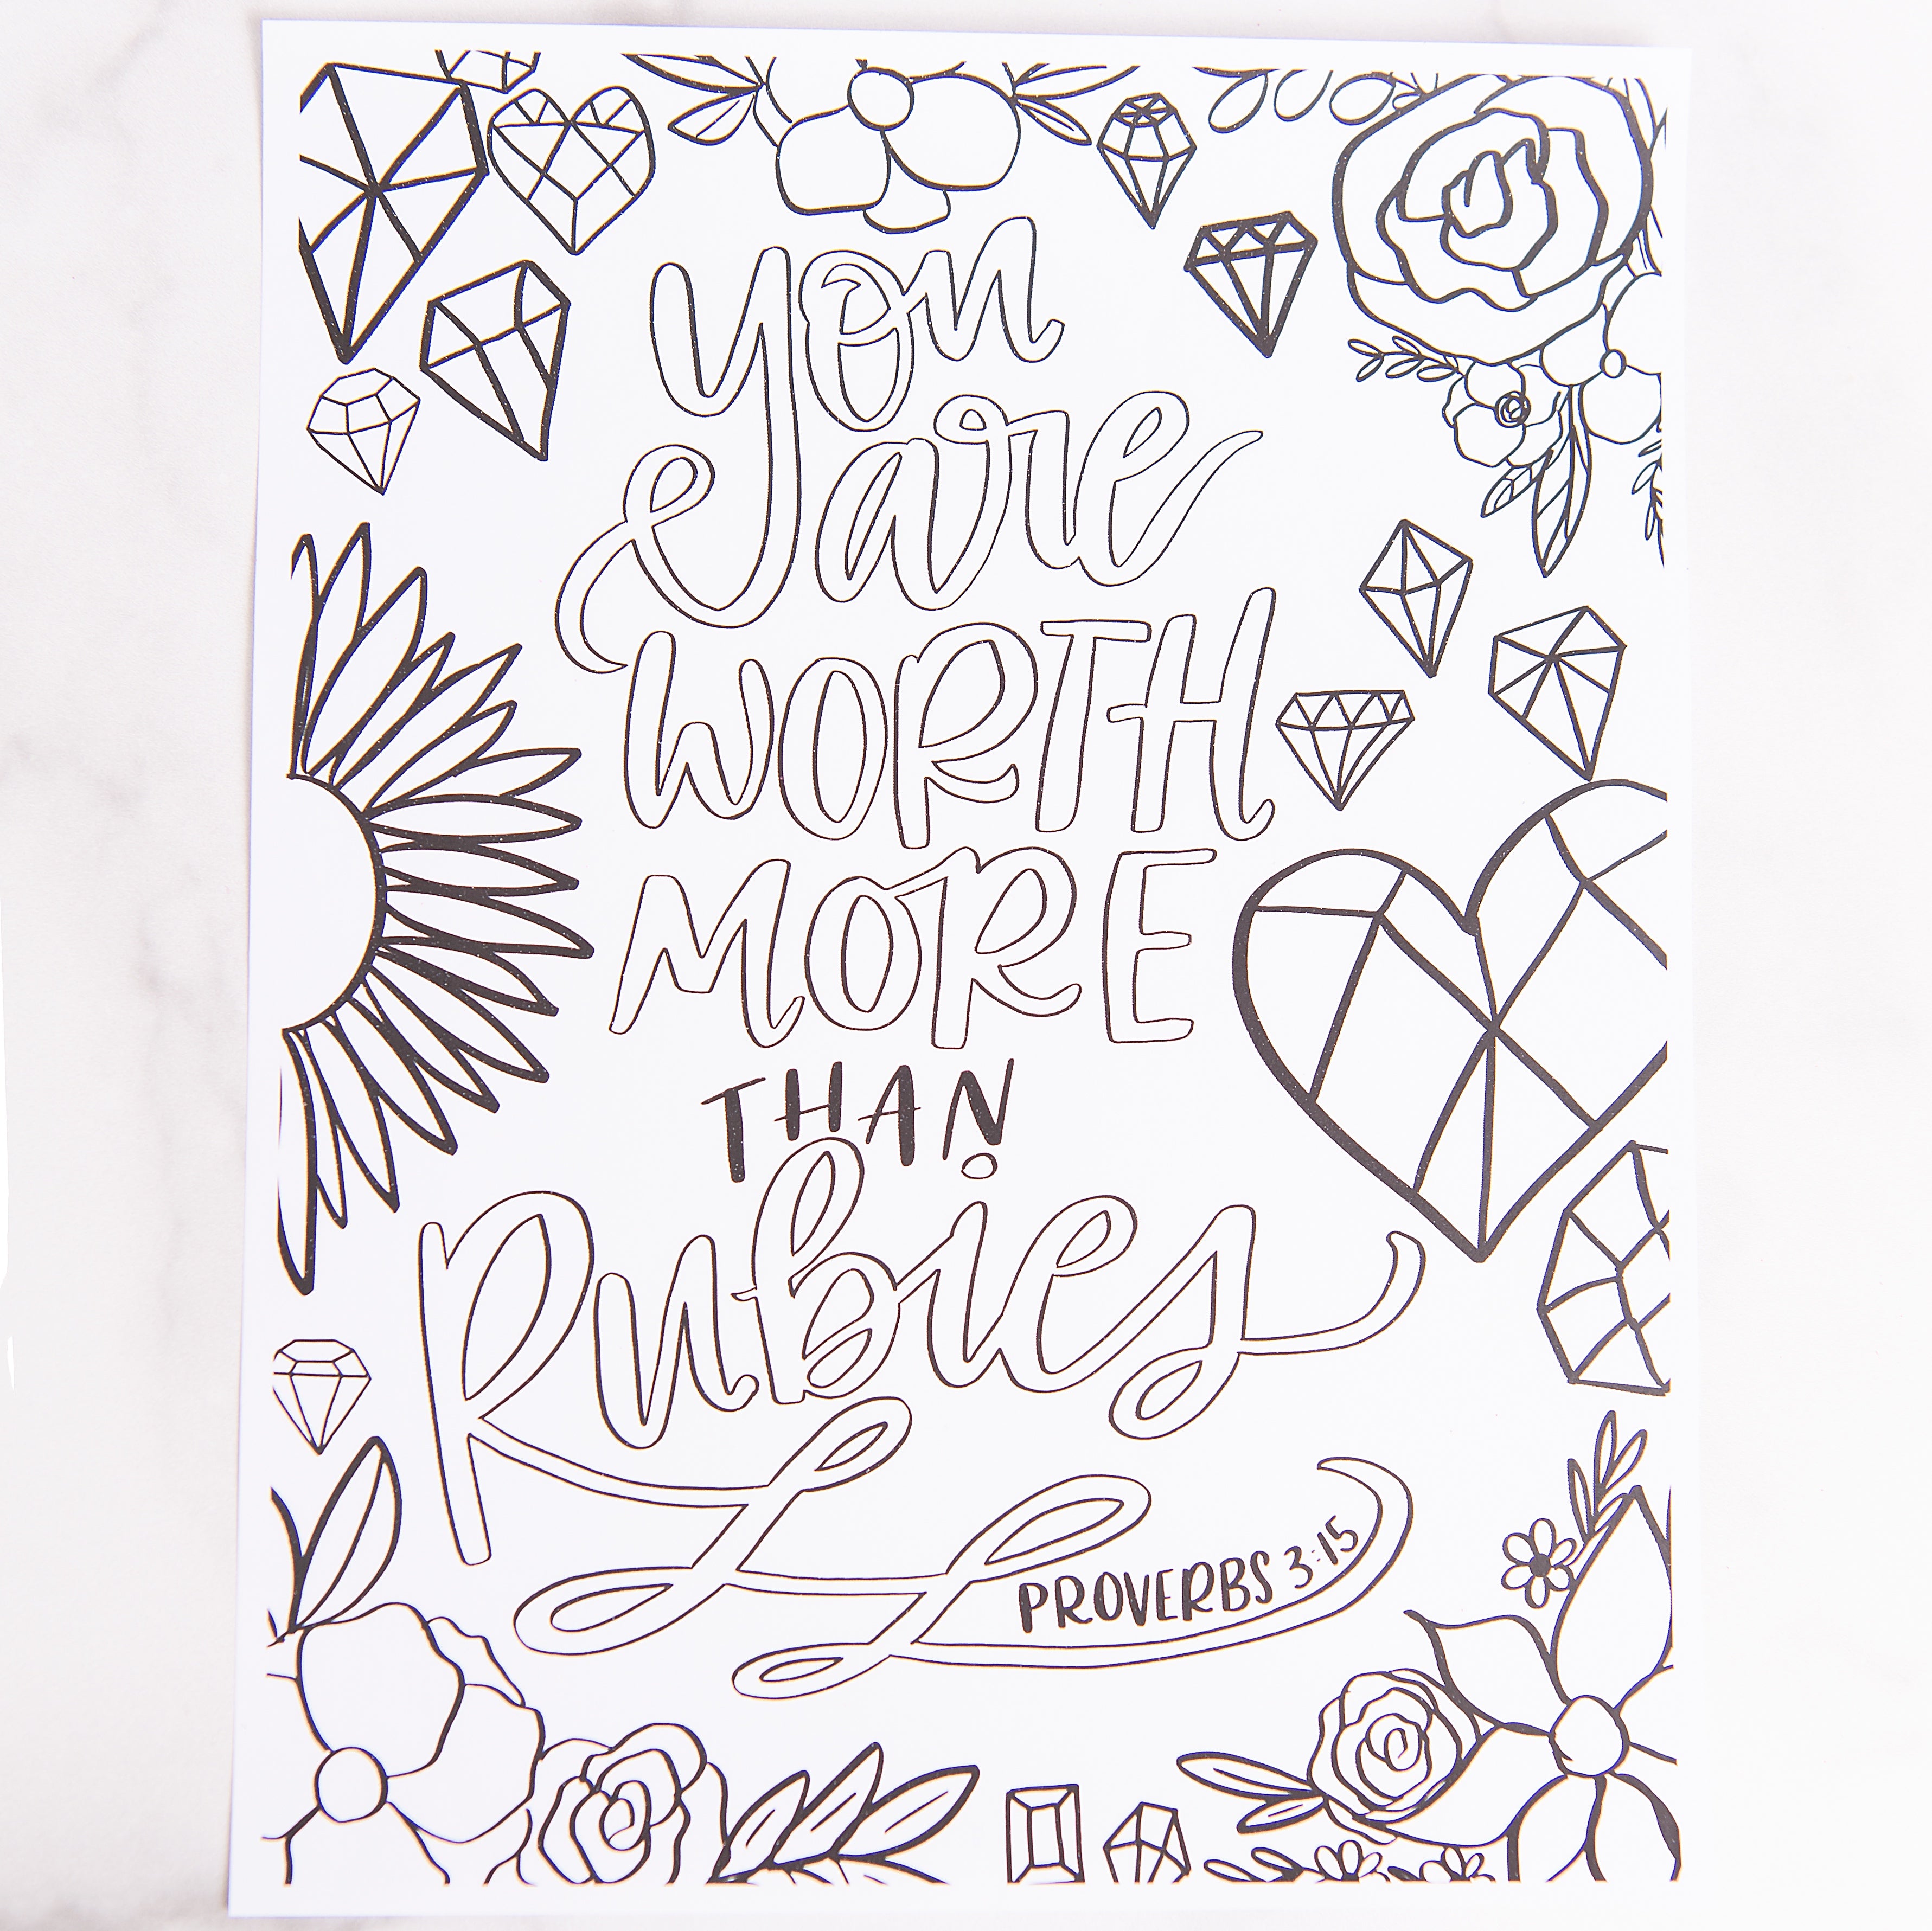 you
are
WORTH
MORE
THAN
Rubies
PROVERBS 3:15